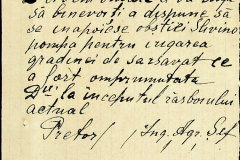 să binevoiți a dispune să
se înapoieze obștiei Slivino
pompa pentru irigarea
gradinei de sarsavat ce
a fost omprumutata
la începutul răsboiului
actual
Pretor / Ing. Agr. Șef